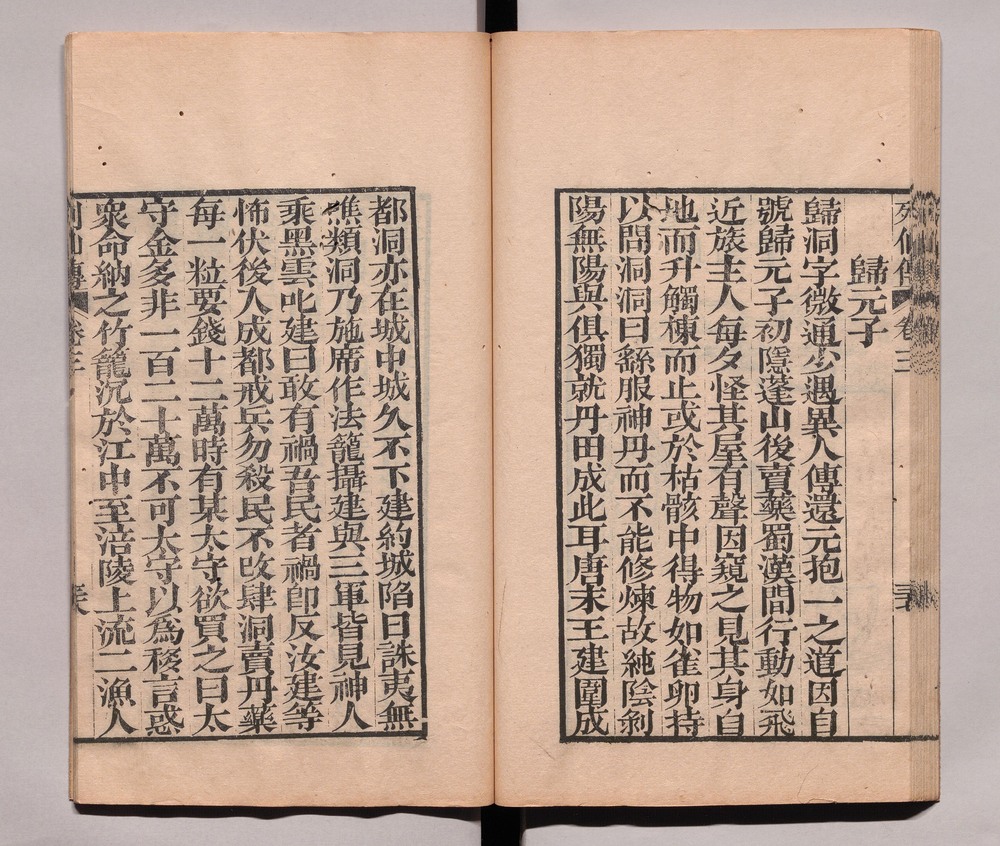 列仙傳 卷三
歸元子
歸洞字微通少遇異人傳還元抱一之道因自
號歸元子初隱蓬山後賣藥蜀漢間行動如飛
近旅主人每夕怪其屋有聲因窺之見其身自
地而升觸棟而止或於枯骸中得物如雀卵持
以問洞洞曰繇服神丹而不能修煉故純陰剝
陽無陽與俱獨就丹田成此耳唐末王建圍成
都洞亦在城中城久不下建約城陷日誅夷無
譙類洞乃施席作法籠攝建與三軍皆見神人
乘黑雲叱建曰敢有禍吾民者禍卽反汝建等
怖伏後入成都戒兵勿殺民不改肆洞賣丹藥
每一粒要錢十二萬時有某太守欲買之曰太
守金多非一百二十萬不可太守以為移言惑
衆命納之竹籠沉於江中至涪陵上流二漁人
列仙傳 卷三